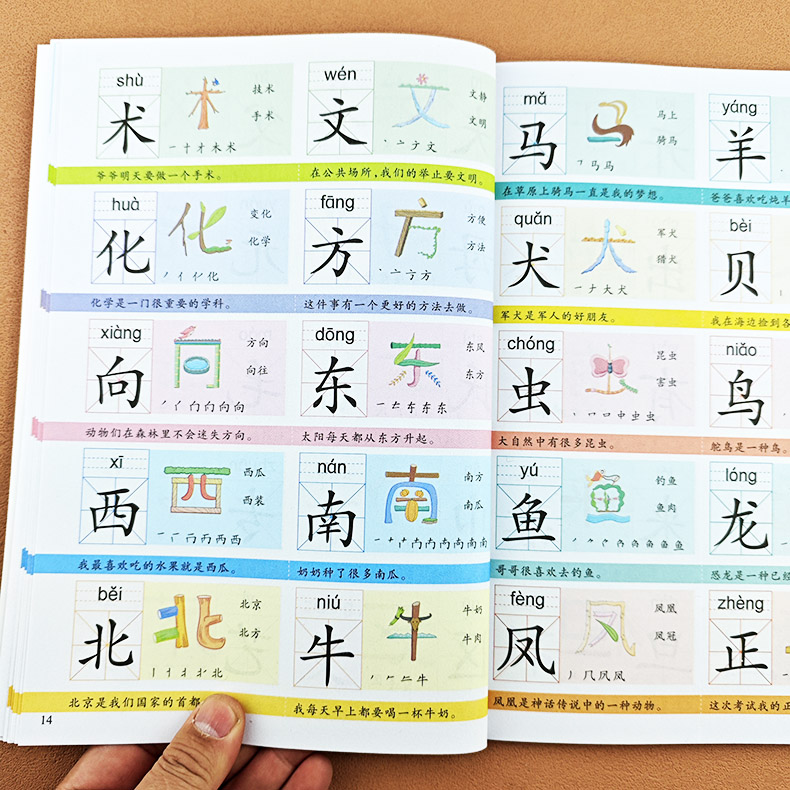 shù
术
技术
手术
一十才木术
爷爷明天要做一个手术。
wén
文
文静
文明
丶亠ナ文
在公共场所，我们的举止要文明。
huà
化
变化
化学
丿亻亻化
化学是一门很重要的学科。
fāng
方
方便
方法
丶亠亍方
这件事有一个更好的方法去做。
xiàng
向
方向
向往
丿亻冂向向向
动物们在森林里不会迷失方向。
dōng
东
东风
东方
一𠂉东东东
太阳每天都从东方升起。
xī
西
西瓜
西装
一丆冂丙西西
我最喜欢吃的水果就是西瓜。
nán
南
南方
南瓜
奶奶种了很多南瓜。
běi
北
北京
北方
北京是我们国家的首都
niú
牛
牛奶
牛肉
丿𠂉二牛
我每天早上都要喝一杯牛奶。
14
mǎ
马
马上
骑马
㇇马马
在草原上骑马一直是我的梦想。
yáng
羊
爸爸喜欢吃炖羊
quǎn
犬
军犬
猎犬
一ナ大犬
军犬是军人的好朋友。
bèi
贝
我在海边捡到各
chóng
虫
昆虫
害虫
丨冂口中虫虫
大自然中有很多昆虫。
niǎo
鸟
鸵鸟是一种鸟。
yú
鱼
钓鱼
鱼肉
哥哥很喜欢去钓鱼。
lóng
龙
恐龙是一种已经
fèng
凤
凤凰
凤冠
丿几凤凤
凤凰是神话传说中的一种动物。
zhèng
正
这次考试我的正